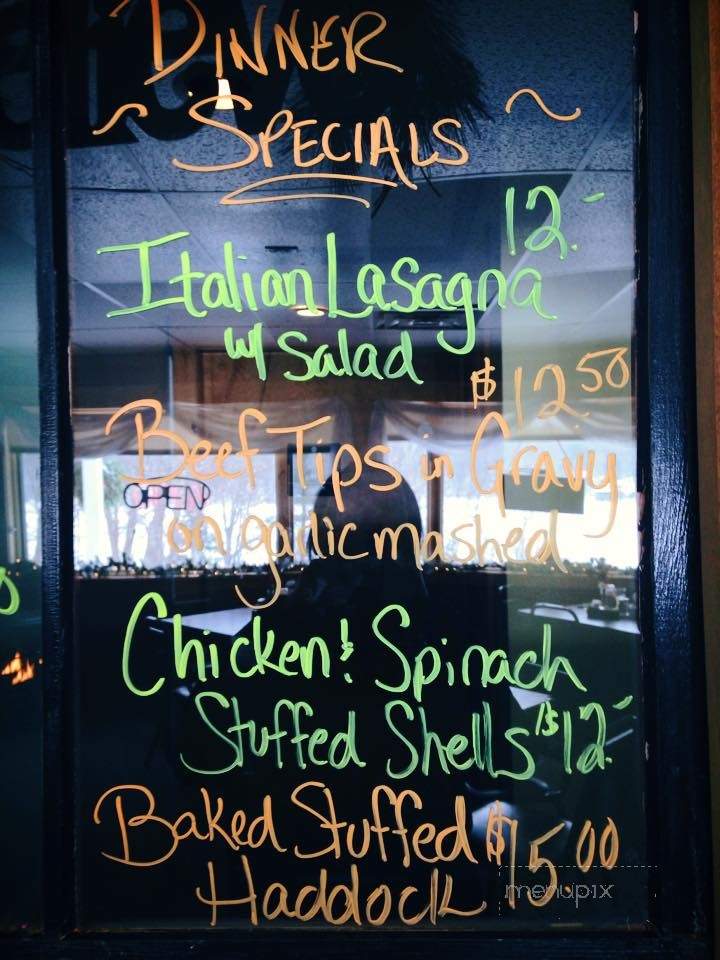 DINNER
~ SPECIALS ~
12.-
Italian Lasagna
w/ Salad
$12.50
Beef Tips in Gravy
OPEN
on garlic mashed
Chicken & Spinach
Stuffed Shells $12.-
Baked Stuffed $15.00
Haddock
menupix